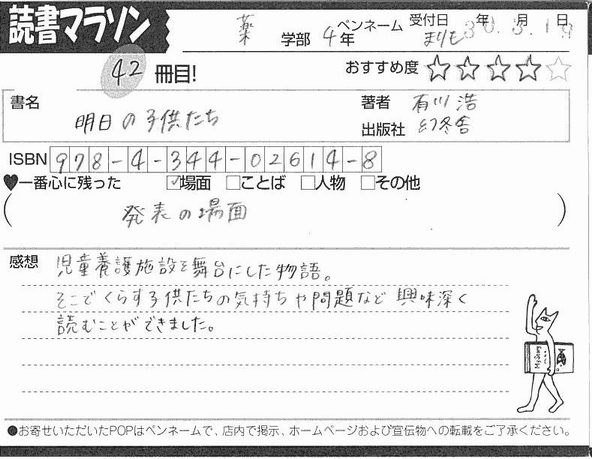 読書マラソン
薬 学部 4年 ペンネーム まりも 受付日 30年 3月 19日
42 冊目!
おすすめ度 ☆☆☆☆☆
書名 明日の子供たち
著者 有川 浩
出版社 幻冬舎
ISBN 978-4-344-02614-8
♥一番心に残った ☑場面 □ことば □人物 □その他
(発表の場面)
感想 児童養護施設を舞台にした物語。
そこでくらす子供たちの気持ちや問題など興味深く
読むことができました。
●お寄せいただいたPOPはペンネームで、店内で掲示、ホームページおよび宣伝物への転載をご了承ください。